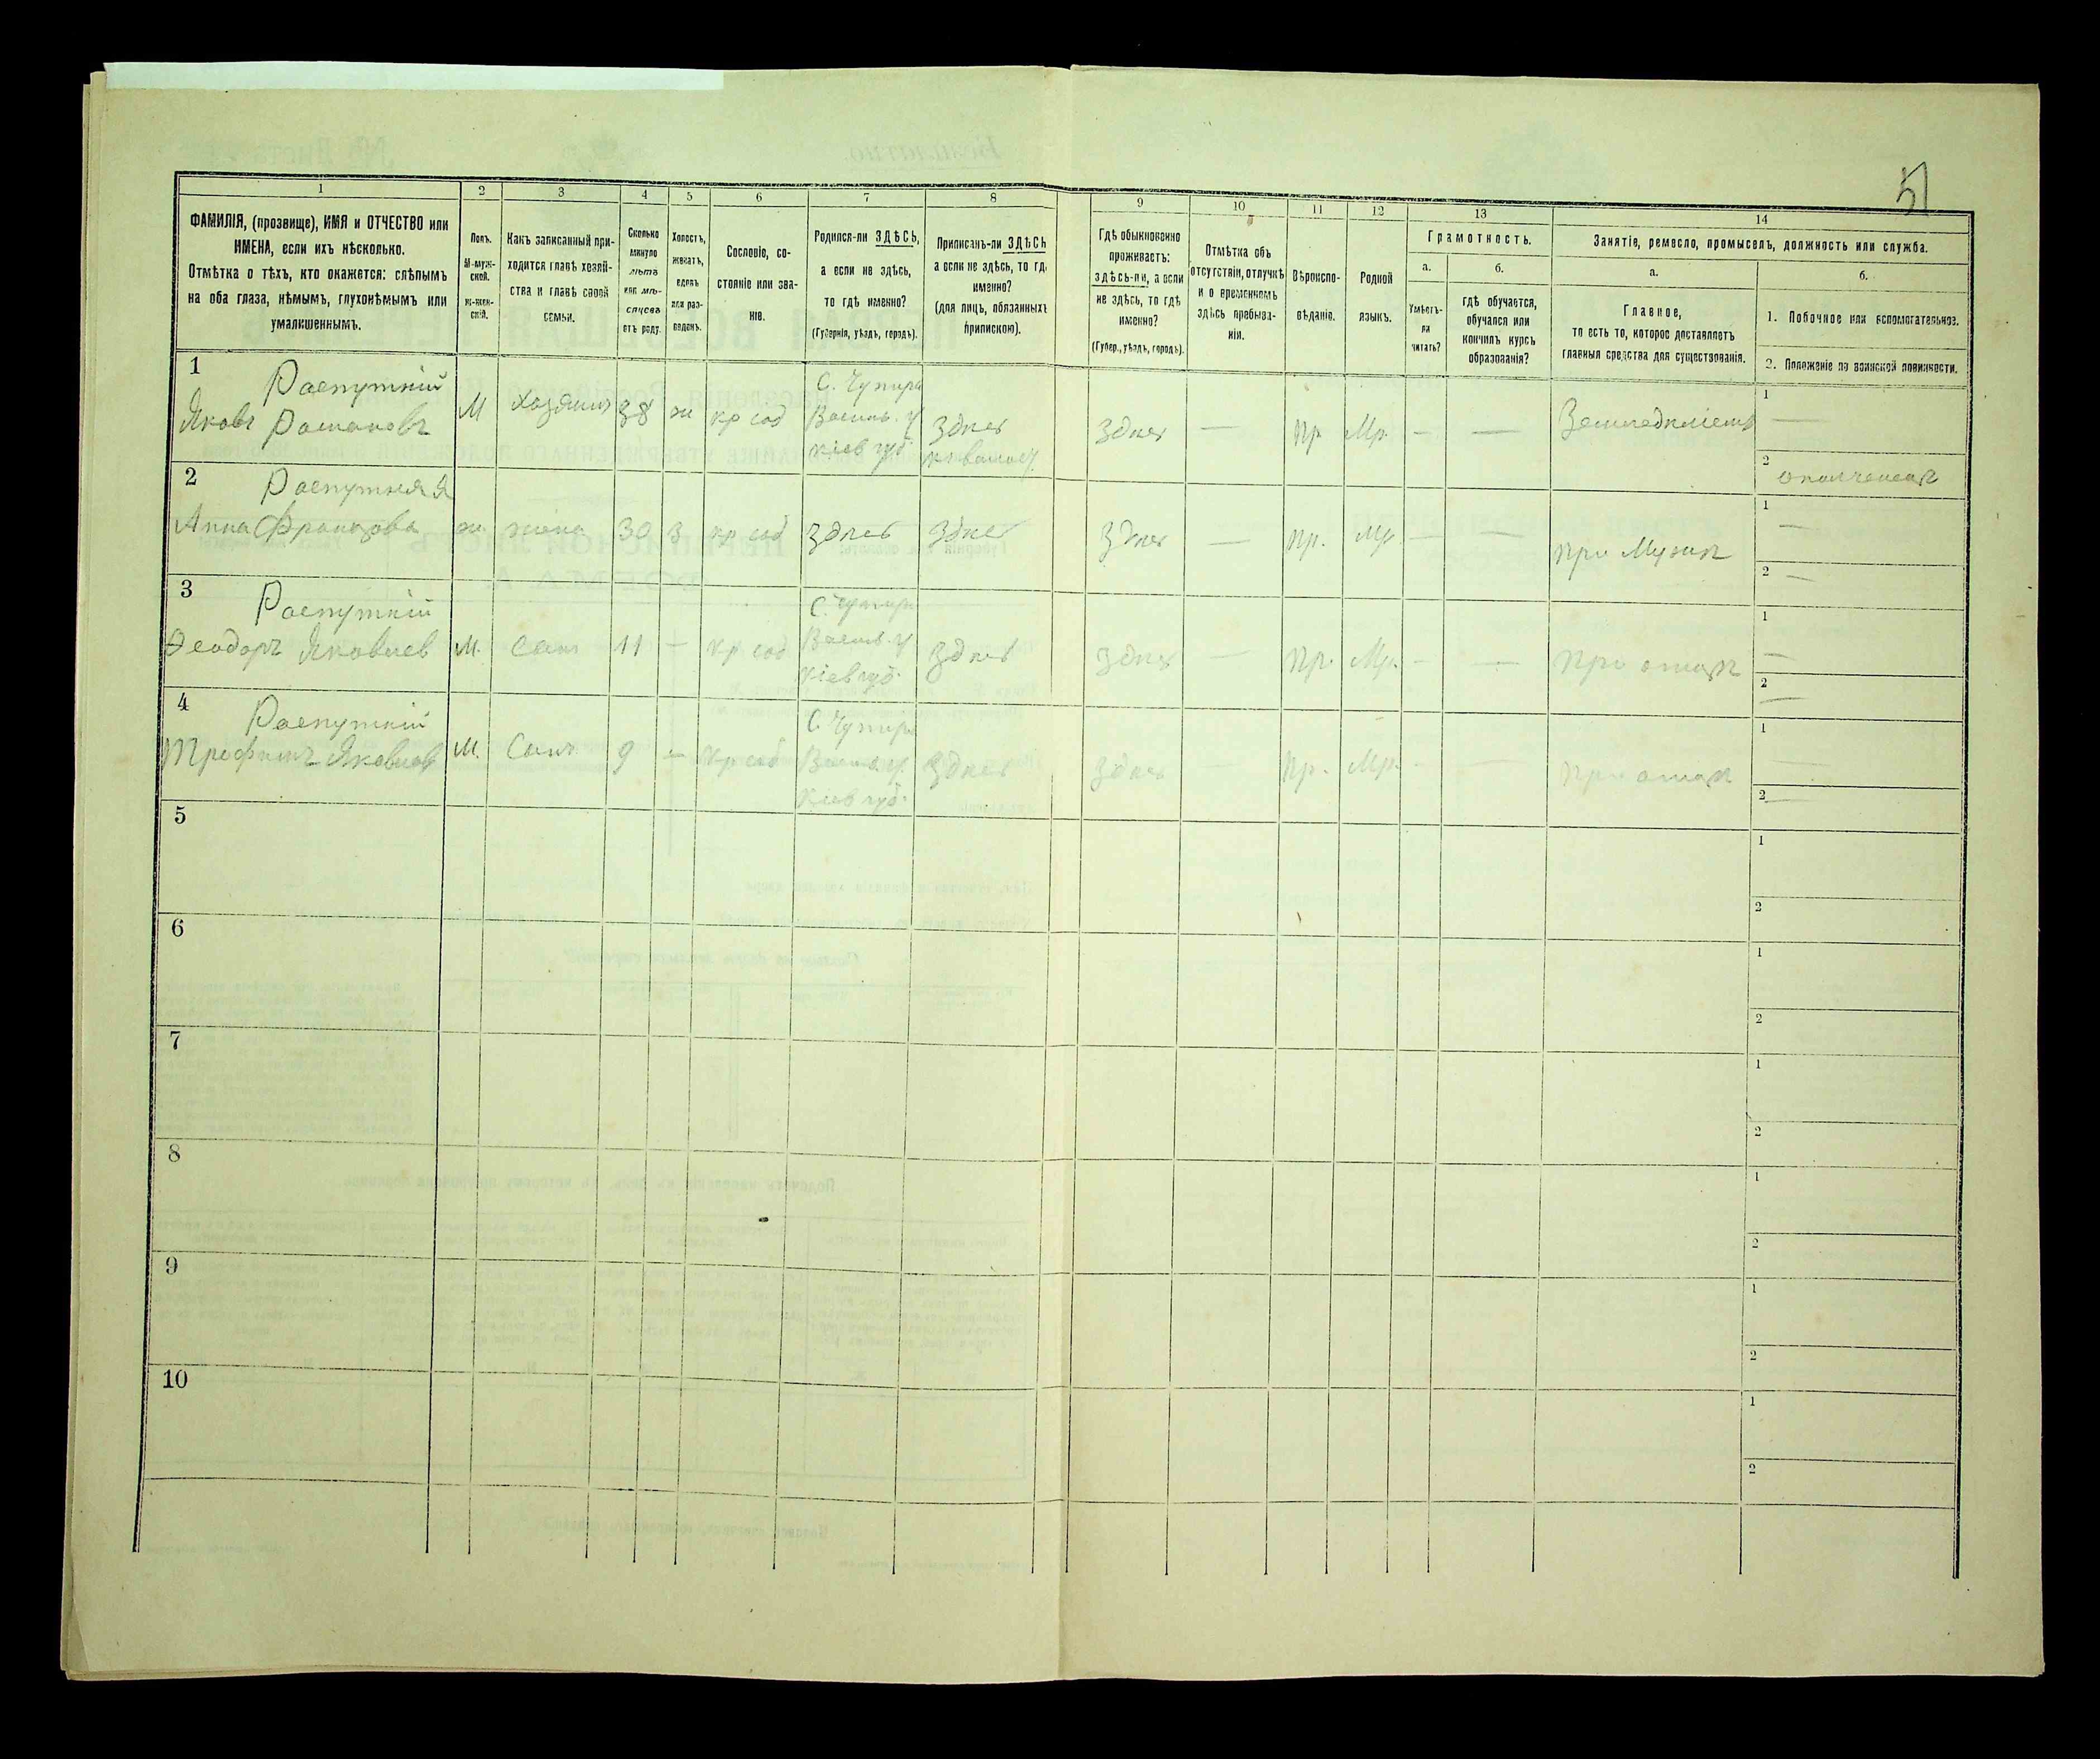 51
1
2
3
4
5
6
7
8
9
10
11
12
13
14
ФАМИЛІЯ, (прозвище), ИМЯ и ОТЧЕСТВО или
ИМЕНА, если ихъ нѣсколько.
Отмѣтка о тѣхъ, кто окажется: слѣпымъ
на оба глаза, нѣмымъ, глухонѣмымъ или
умалишеннымъ.
Полъ.
М-муж-
ской.
ж-жен-
скій.
Какъ записанный при-
ходится главѣ хозяй-
ства и главѣ своей
семьи.
Сколько
минуло
лѣтъ
или мѣ-
сяцевъ
отъ роду.
Холостъ,
женатъ,
вдовъ
или раз-
веденъ.
Сословіе, со-
стояніе или зва-
ніе.
Родился-ли ЗДѢСЬ,
а если не здѣсь,
то гдѣ именно?
(Губернія, уѣздъ, городъ).
Приписанъ-ли ЗДѢСЬ
а если не здѣсь, то гдѣ
именно?
(для лицъ, обязанныхъ
припискою).
Гдѣ обыкновенно
проживаетъ:
здѣсь-ли, а если
не здѣсь, то гдѣ
именно?
(Губер., уѣздъ, городъ).
Отмѣтка объ
отсутствіи, отлучкѣ
и о временномъ
здѣсь пребыва-
ніи.
Вѣроиспо-
вѣданіе.
Родной
языкъ.
Грамотность.
а.
Умѣетъ-
ли
читать?
б.
гдѣ обучается,
обучался или
кончилъ курсъ
образованія?
Занятіе, ремесло, промыселъ, должность или служба.
а.
Главное,
то есть то, которое доставляетъ
главныя средства для существованія.
б.
1. Побочное или вспомогательное.
2. Положеніе по воинской повинности.
1
Распутній
Яковъ Романовъ
М
хозяинъ
38
ж
кр соб
С. Чупира
Васильк. у
Кіев губ.
Здѣсь
Здѣсь
—
Пр.
Мр.
—
—
Земледѣліемъ
1 —
2
ополченецъ
2
Распутняя
Анна Францова
ж.
жена
30
З
кр соб
Здѣсь
Здѣсь
Здѣсь
—
Пр.
Мр.
—
—
При Мужѣ
1 —
2 —
3
Распутній
Ѳеодоръ Яковлев
М.
Сынъ
11
—
кр соб
С. Чупира
Васильк. у
Кіев губ.
Здѣсь
Здѣсь
—
Пр.
Мр.
—
—
При отцѣ
1 —
2 —
4
Распутній
Трофимъ Яковлев
М.
Сынъ
9
—
кр соб
С. Чупира
Васильк. у.
Кіев губ.
Здѣсь
Здѣсь
—
Пр.
Мр.
—
—
При отцѣ
1 —
2 —
5
1
2
6
1
2
7
1
2
8
1
2
9
1
2
10
1
2